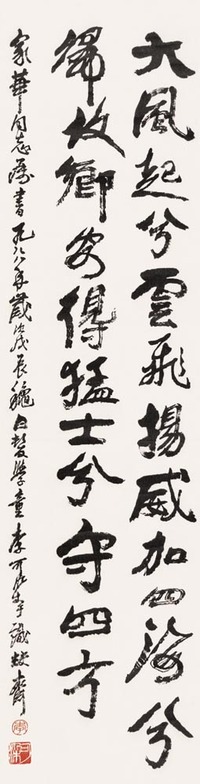 大風起兮雲飛揚威加四海兮
歸故鄉安得猛士兮守四方
家華同志属書一九八八年歲次戊辰龝白髮學童李可染識缺齋
李
可染